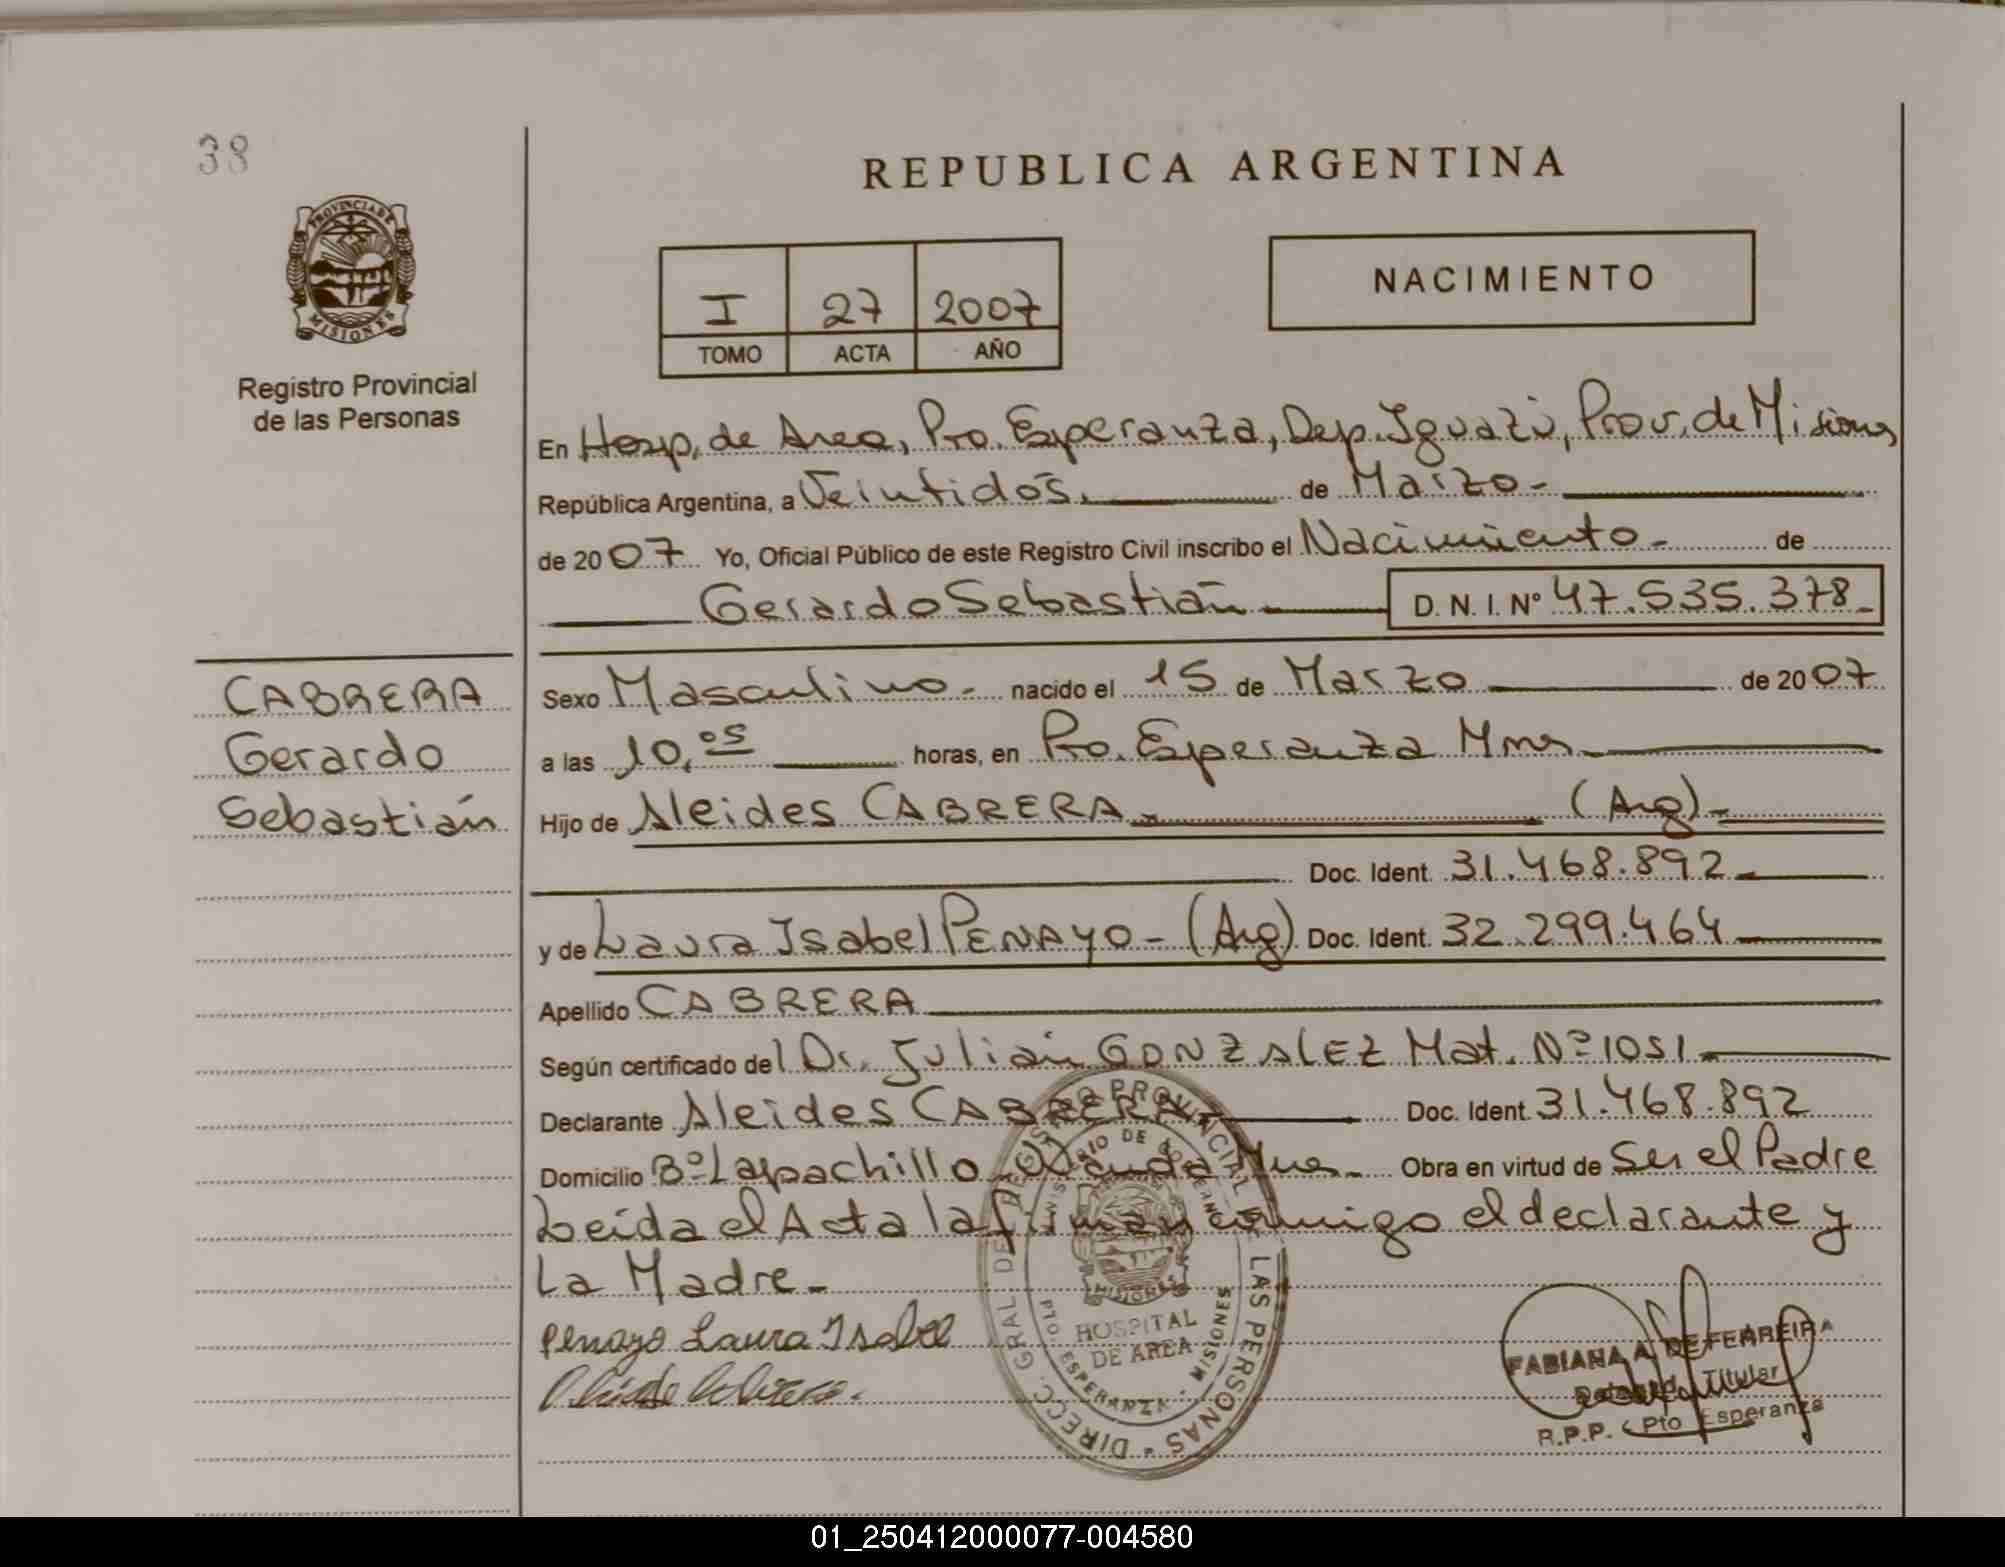 38
REPUBLICA ARGENTINA
PROVINCIA DE
MISIONES
Registro Provincial
de las Personas
I 27 2007
TOMO ACTA AÑO
NACIMIENTO
En Hosp. de Area, Pto. Esperanza, Dep. Iguazú, Prov. de Misiones
República Argentina, a Veintidós. de Marzo-
de 2007 Yo, Oficial Público de este Registro Civil inscribo el Nacimiento- de
Gerardo Sebastián D. N. I. Nº 47.535.378-
CABRERA
Gerardo
Sebastián
Sexo Masculino- nacido el 15 de Marzo de 2007
a las 10,05 horas, en Pto. Esperanza Mnes
Hijo de Aleides CABRERA- (Arg)-
Doc. Ident. 31.468.892-
y de Laura Isabel PENAYO- (Arg) Doc. Ident. 32.299.464
Apellido CABRERA
Según certificado del Dr. Julián GONZALEZ Mat. Nº 1051-
Declarante Aleides CABRERA Doc. Ident. 31.468.892
Domicilio Bº Lapachillo Wanda Mnes- Obra en virtud de Ser el Padre
Leida el Acta la firman conmigo el declarante y
La Madre-
Penayo Laura Isabel
DIRECC. GRAL DE REGISTRO PROVINCIAL DE LAS PERSONAS
MINISTERIO DE GOBIERNO
MISIONES
HOSPITAL
DE AREA
PTO. ESPERANZA - MISIONES
FABIANA A. DE FERREIRA
Titular
R.P.P. Pto Esperanza
01_250412000077-004580